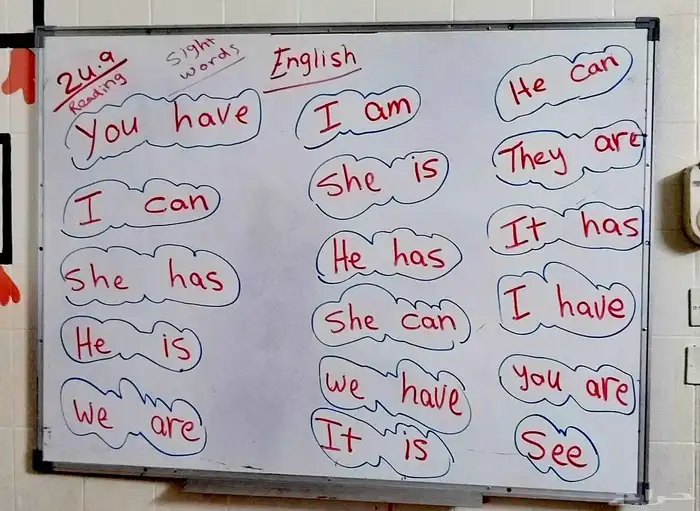 2u.9
Reading
Sight
words
English
You have
I can
She has
He is
We are
I am
She is
He has
She can
We have
It is
He can
They are
It has
I have
You are
See